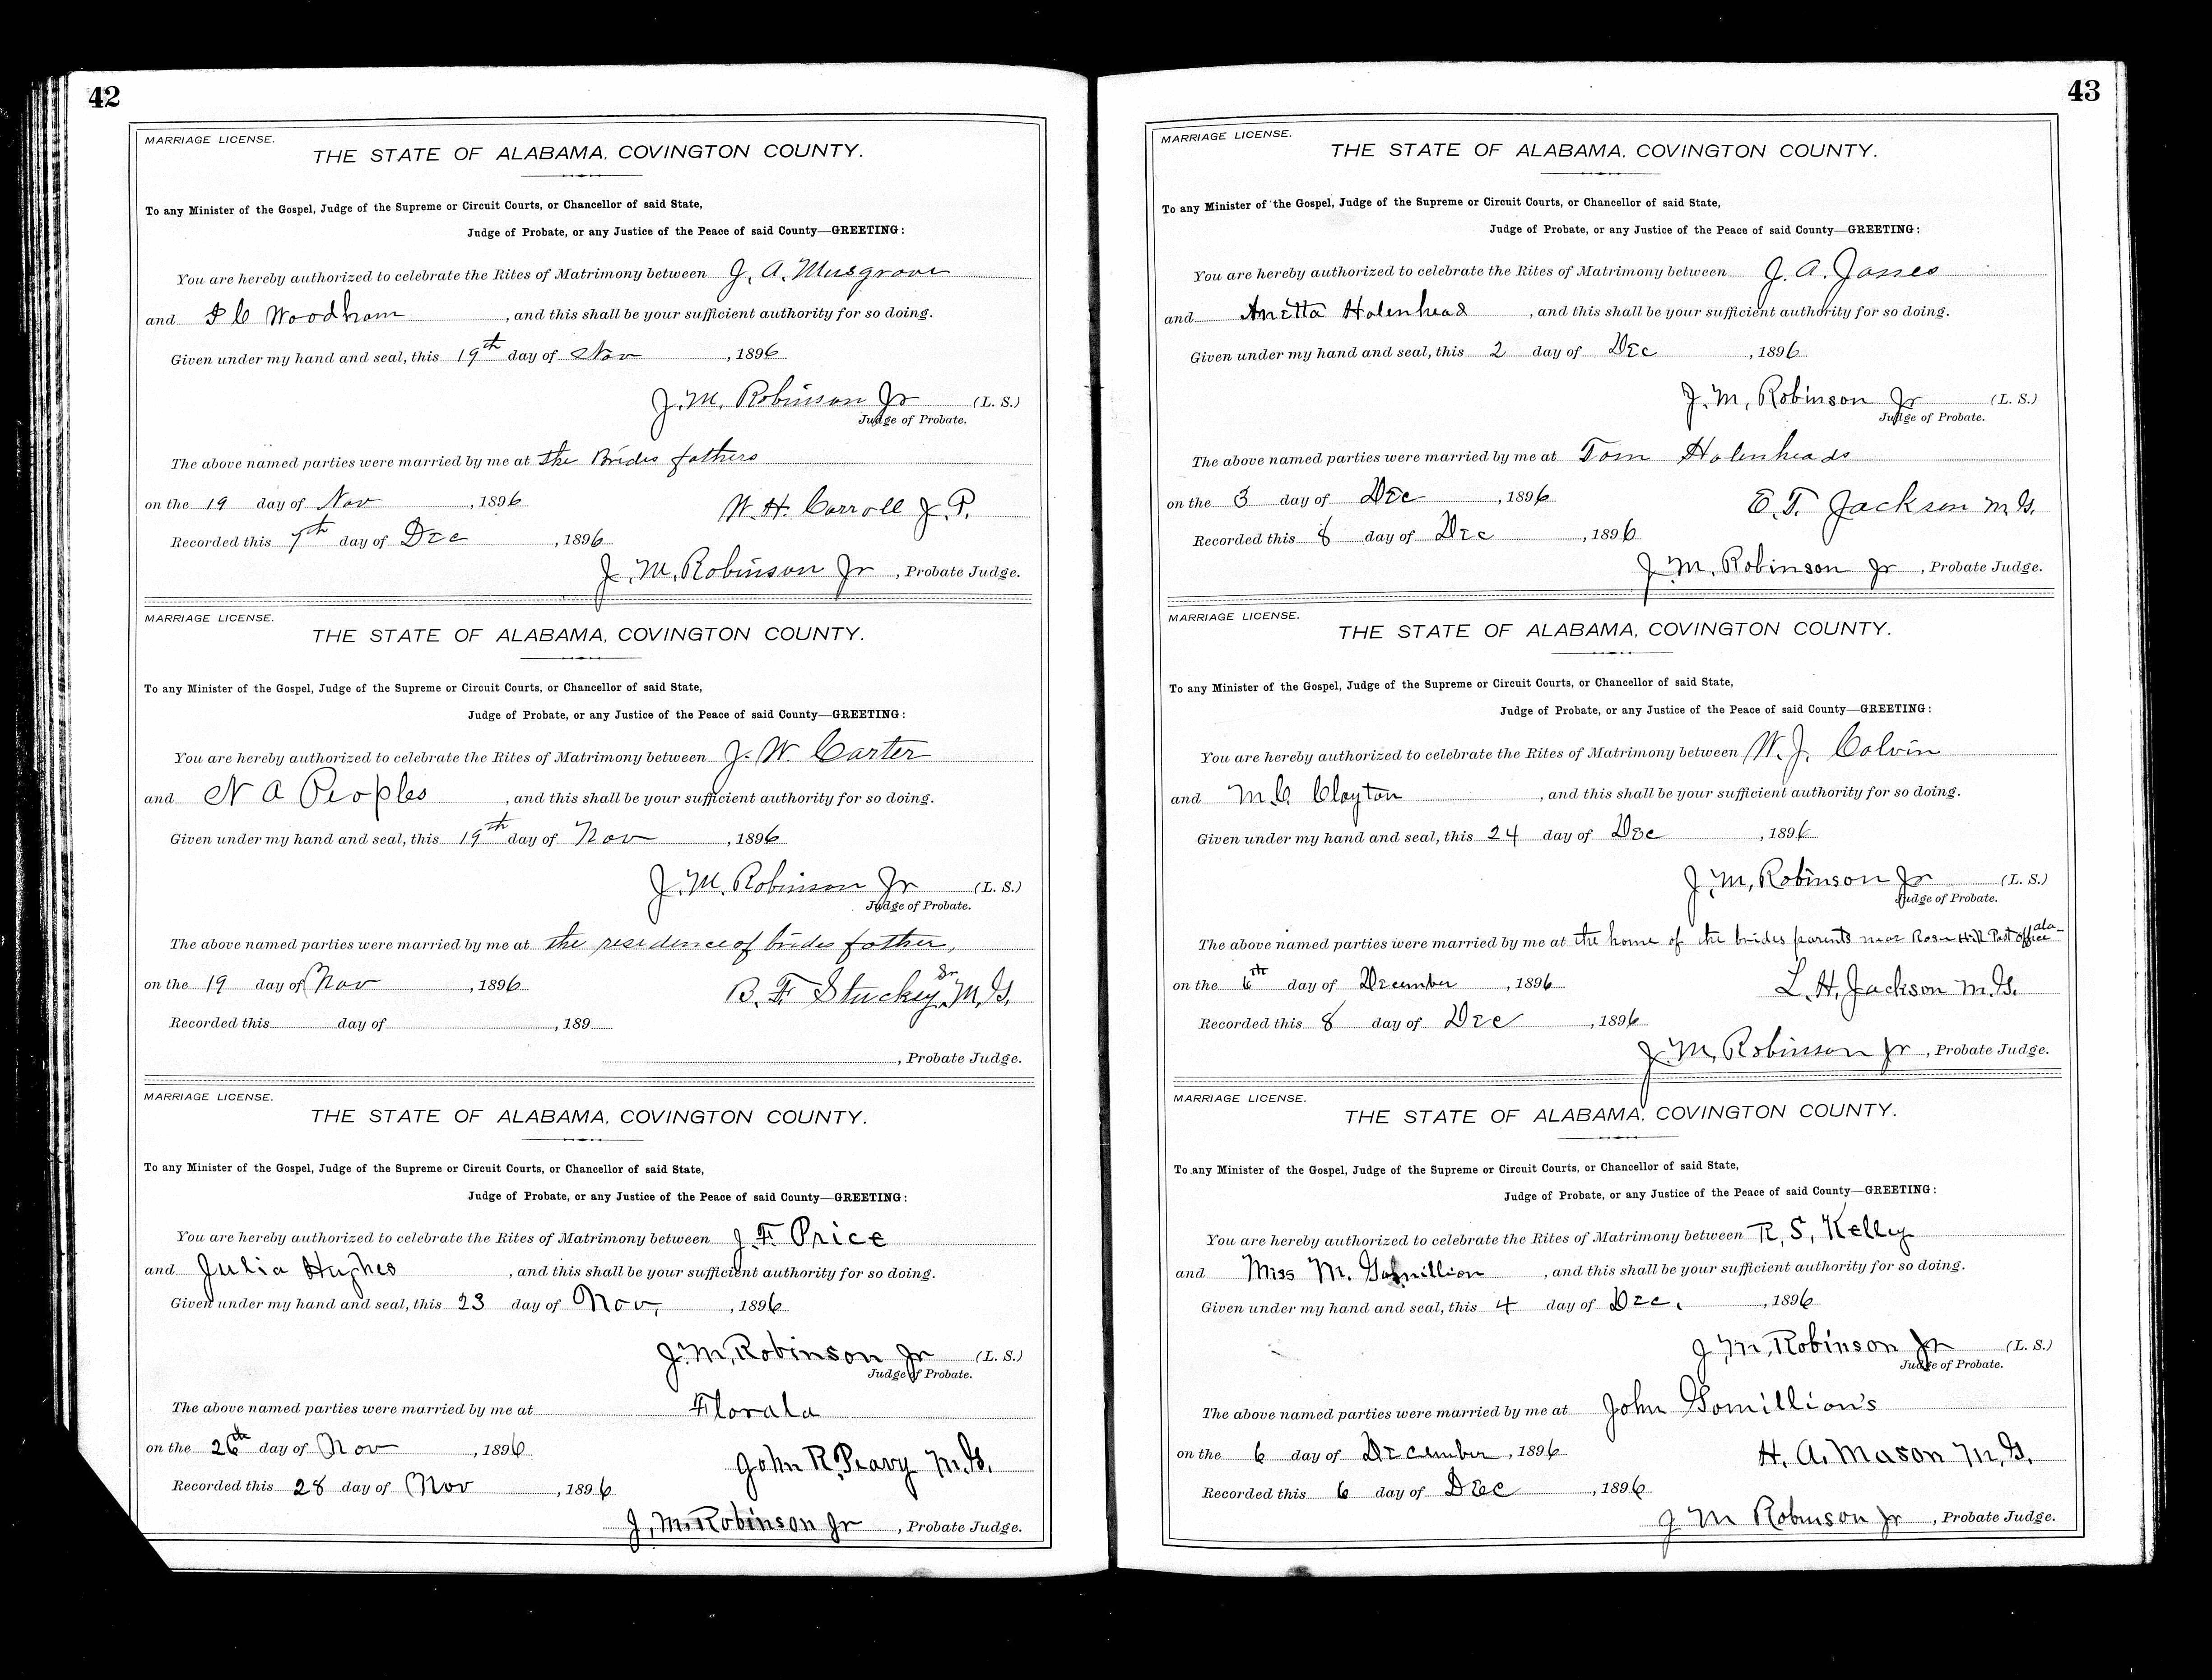 42
MARRIAGE LICENSE.
THE STATE OF ALABAMA, COVINGTON COUNTY.
To any Minister of the Gospel, Judge of the Supreme or Circuit Courts, or Chancellor of said State,
Judge of Probate, or any Justice of the Peace of said County—GREETING:
You are hereby authorized to celebrate the Rites of Matrimony between J. A. Musgrove
and C Woodham, and this shall be your sufficient authority for so doing.
Given under my hand and seal, this 19th day of Nov, 1896
J. M. Robinson Jr (L. S.)
Judge of Probate.
The above named parties were married by me at the Brides fathers
on the 19 day of Nov, 1896
W. H. Carroll J. P.
Recorded this 7th day of Dec, 1896
J. M. Robinson Jr, Probate Judge.
MARRIAGE LICENSE.
THE STATE OF ALABAMA, COVINGTON COUNTY.
To any Minister of the Gospel, Judge of the Supreme or Circuit Courts, or Chancellor of said State,
Judge of Probate, or any Justice of the Peace of said County—GREETING:
You are hereby authorized to celebrate the Rites of Matrimony between J. W. Carter
and N A Peoples, and this shall be your sufficient authority for so doing.
Given under my hand and seal, this 19th day of Nov, 1896
J. M. Robinson Jr (L. S.)
Judge of Probate.
The above named parties were married by me at the residence of brides father,
on the 19 day of Nov, 1896
B. F Stuckey Sr. M. G.
Recorded this day of , 189
, Probate Judge.
MARRIAGE LICENSE.
THE STATE OF ALABAMA, COVINGTON COUNTY.
To any Minister of the Gospel, Judge of the Supreme or Circuit Courts, or Chancellor of said State,
Judge of Probate, or any Justice of the Peace of said County—GREETING:
You are hereby authorized to celebrate the Rites of Matrimony between J. F. Price
and Julia Hughes, and this shall be your sufficient authority for so doing.
Given under my hand and seal, this 23 day of Nov, 1896
J. M. Robinson Jr (L. S.)
Judge of Probate.
The above named parties were married by me at Florala
on the 26th day of Nov, 1896
John R. Peavy M. G.
Recorded this 28 day of Nov, 1896
J. M. Robinson Jr, Probate Judge.
43
MARRIAGE LICENSE.
THE STATE OF ALABAMA, COVINGTON COUNTY.
To any Minister of the Gospel, Judge of the Supreme or Circuit Courts, or Chancellor of said State,
Judge of Probate, or any Justice of the Peace of said County—GREETING:
You are hereby authorized to celebrate the Rites of Matrimony between J. A. Jones
and Anetta Holenhead, and this shall be your sufficient authority for so doing.
Given under my hand and seal, this 2 day of Dec, 1896
J. M. Robinson Jr (L. S.)
Judge of Probate.
The above named parties were married by me at Tom Holenheads
on the 3 day of Dec, 1896
E. T. Jackson M. G.
Recorded this 8 day of Dec, 1896
J. M. Robinson Jr, Probate Judge.
MARRIAGE LICENSE.
THE STATE OF ALABAMA, COVINGTON COUNTY.
To any Minister of the Gospel, Judge of the Supreme or Circuit Courts, or Chancellor of said State,
Judge of Probate, or any Justice of the Peace of said County—GREETING:
You are hereby authorized to celebrate the Rites of Matrimony between W. J. Colvin
and M. C Clayton, and this shall be your sufficient authority for so doing.
Given under my hand and seal, this 24 day of Dec, 1896
J. M. Robinson Jr (L. S.)
Judge of Probate.
The above named parties were married by me at the home of the brides parents near Rose Hill Post office ala-
on the 6th day of December, 1896
L. H. Jackson M. G.
Recorded this 8 day of Dec, 1896
J. M. Robinson Jr, Probate Judge.
MARRIAGE LICENSE.
THE STATE OF ALABAMA, COVINGTON COUNTY.
To any Minister of the Gospel, Judge of the Supreme or Circuit Courts, or Chancellor of said State,
Judge of Probate, or any Justice of the Peace of said County—GREETING:
You are hereby authorized to celebrate the Rites of Matrimony between R. S. Kelly
and Miss M. Gomillion, and this shall be your sufficient authority for so doing.
Given under my hand and seal, this 4 day of Dec., 1896
J. M. Robinson Jr (L. S.)
Judge of Probate.
The above named parties were married by me at John Gomillion's
on the 6 day of December, 1896
H. A. Mason M. G.
Recorded this 6 day of Dec, 1896
J M Robinson Jr, Probate Judge.